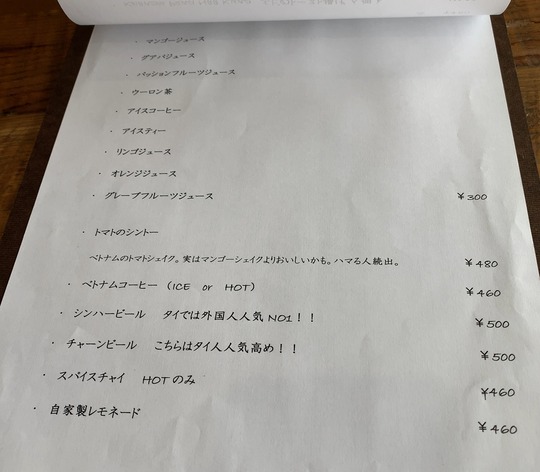 ・ マンゴージュース
・ グアバジュース
・ パッションフルーツジュース
・ ウーロン茶
・ アイスコーヒー
・ アイスティー
・ リンゴジュース
・ オレンジジュース
・ グレープフルーツジュース ¥300
・ トマトのシントー
ベトナムのトマトシェイク。実はマンゴーシェイクよりおいしいかも。ハマる人続出。 ¥480
・ ベトナムコーヒー （ICE or HOT） ¥460
・ シンハービール タイでは外国人人気 NO1！！ ¥500
・ チャーンビール こちらはタイ人人気高め！！ ¥500
・ スパイスチャイ HOTのみ ¥460
・ 自家製レモネード ¥460